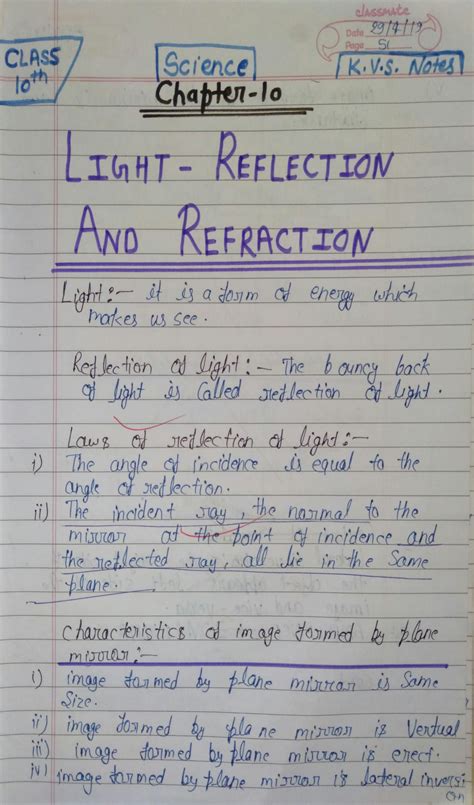 classmate
Date 29/4/19
Page 51
CLASS
10th
Science
K.V.S. Notes
Chapter-10
LIGHT - REFLECTION
AND REFRACTION
Light:- it is a form of energy which
makes us see.
Reflection of light:- The bouncy back
of light is called reflection of light.
Laws of reflection of light:-
i) The angle of incidence is equal to the
angle of reflection.
ii) The incident ray, the normal to the
mirror at the point of incidence and
the reflected ray, all lie in the Same
plane.
Characteristics of image formed by plane
mirror:-
i) image formed by plane mirror is Same
Size.
ii) image formed by plane mirror is Vertual
iii) image formed by plane mirror is erect.
iv) image formed by plane mirror is lateral inversi
on